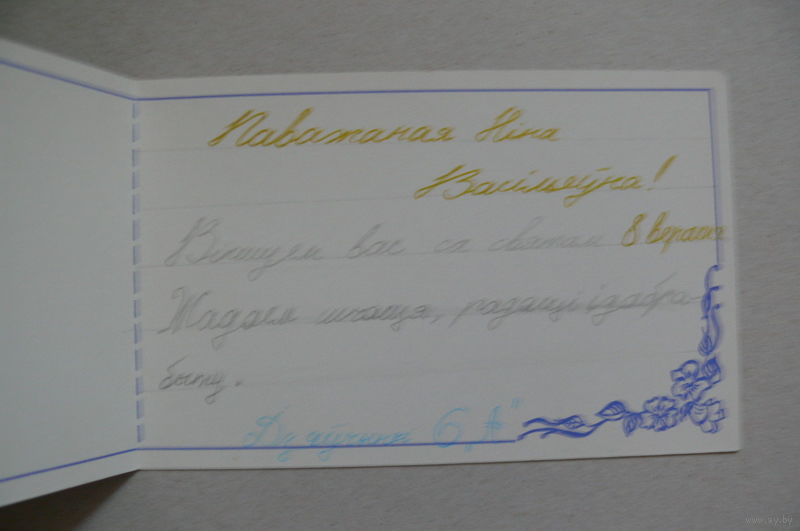 Паважаная Ніна
Васільеўна!
Віншуем вас са святам 8 верасня
Жадаем шчасця, радасці і дабра-
быту.
Дзяўчынкі 6 „А"
www.ay.by